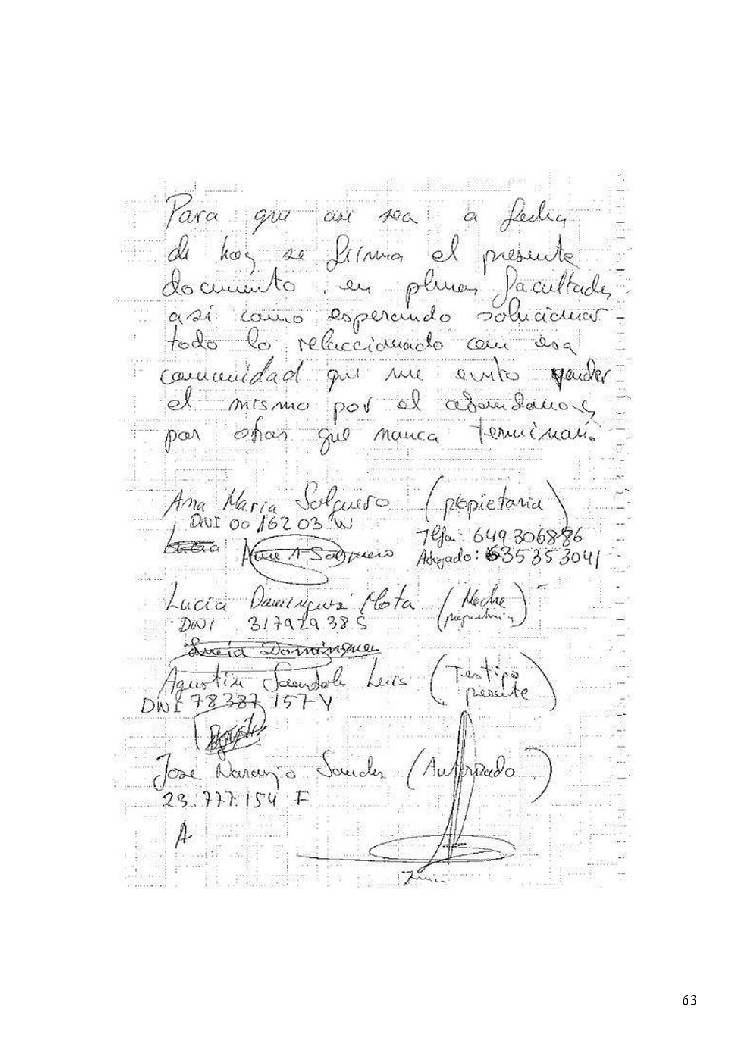 Para que asi sea a fecha
de hoy se firma el presente
documento, en plenas facultades,
asi como esperando solucionar
todo lo relaccionado con esa
comunidad que me evito vender
el mismo por el abandono y
por obras que nunca terminan.
Ana Maria Salguero (propietaria)
DNI 00 16203 W
Tlfo: 649 306886
Abogado: 635353041
Lucia Dominguez Mota (Madre
propietaria)
DNI 31792938 S
Lucia Dominguez
Agustin Luis (Testigo
presente)
DNI 78387157 Y
Jose Naranjo (Autorizado)
23.777.154 F
A
63